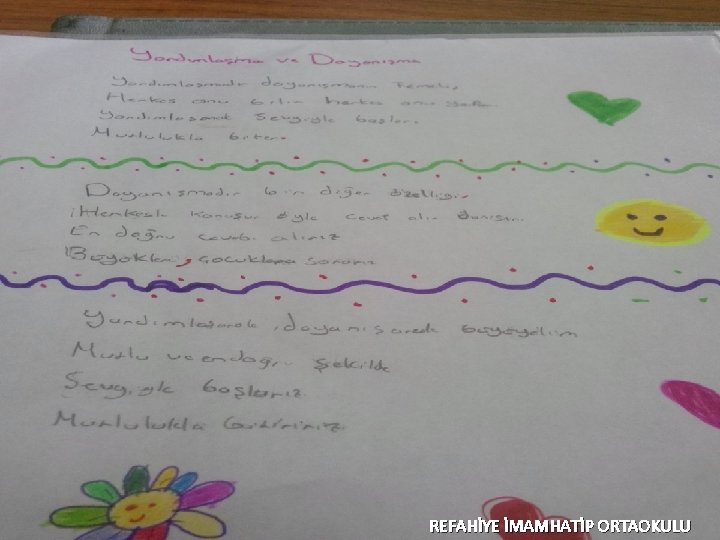 Yardımlaşma ve Dayanışma
Yardımlaşmadır dayanışmanın temeli,
Herkes onu bilir herkes onu
Yardımlaşmak sevgiyle başlar.
Mutlulukla biter.
Dayanışmadır bir diğer özelliği.
Herkesle konuşur öyle cevap alır
En doğru cevabı alırız
Büyükler, çocuklara sorarız
Yardımlaşarak, dayanışarak büyüyelim
Mutlu ve en doğru şekilde
Sevgiyle başlarız.
Mutlulukla bitiririz.
REFAHİYE İMAMHATİP ORTAOKULU